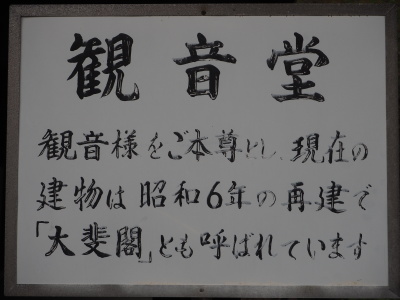 観音堂
観音様をご本尊にし、現在の
建物は昭和6年の再建で
「大斐閣」とも呼ばれています